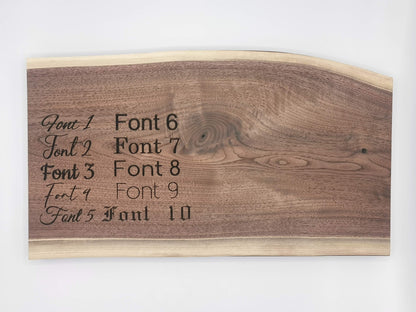 Font 1 Font 6
Font 2 Font 7
Font 3 Font 8
Font 4 Font 9
Font 5 Font 10